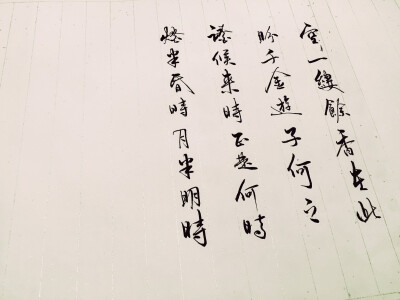 空一縷餘香在此
盼千金遊子何之
證候来時正是何時
燈半昏時月半明時